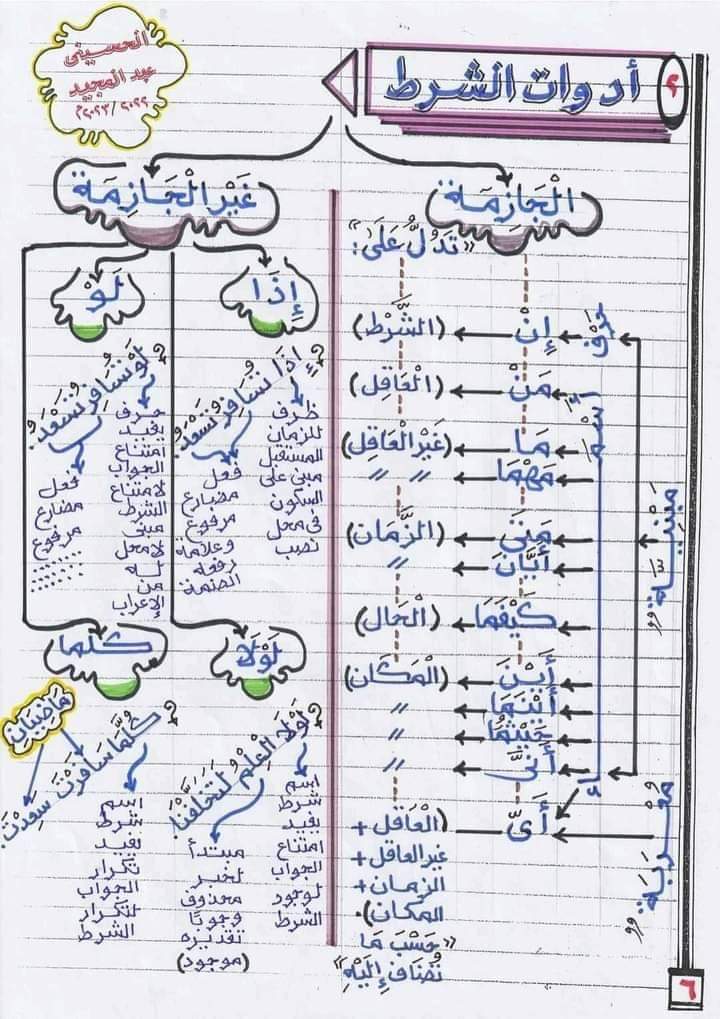 الحسينى
عبد المجيد
٢٠٢٢ /٢٠٢٣م
٢
أدوات الشرط
الْجَازِمَة
«تَدُلُّ عَلَى:»
مَبْنِيَّة
حَرْف
إِنْ (الشَّرْط)
اسْم
مَنْ (الْعَاقِل)
مَا (غَيْر الْعَاقِل)
مَهْمَا 〃 〃
مَتَى (الزَّمَان)
أَيَّانَ 〃
كَيْفَمَا (الْحَال)
أَيْنَ (الْمَكَان)
أَيْنَمَا 〃
حَيْثُمَا 〃
أَنَّى 〃
مُعْرَبَة
أَىّ (العَاقل +
غير العاقل +
الزمان +
المكان).
«حَسْبَ مَا
تُضَاف إِلَيْهِ»
غَيْر الْجَازِمَة
إِذَا
إِذَا تُسَافِرُ تَسْعَدُ
ظرف
للزمان
المستقبل
مبنى على
السكون
فى محل
نصب
فعل
مضارع
مرفوع
وعلامة
رفعه
الضمة
لَوْ
لَوْ تُسَافِرُ تَسْعَدُ
حرف
يفيد
امتناع
الجواب
لامتناع
الشرط
مبنى
لا محل
له
من
الإعراب
فعل
مضارع
مرفوع
لَوْلَا
لَوْلَا الْعِلْمُ لَتَخَلَّفْنَا
اسم
شرط
يفيد
امتناع
الجواب
لوجود
الشرط
مبتدأ
لخبر
محذوف
وجوبًا
تقديره
(موجود)
كلما
كُلَّمَا سَافَرْتَ سَعِدْتَ
مَاضِيَان
اسم
شرط
يفيد
تكرار
الجواب
لتكرار
الشرط
٦